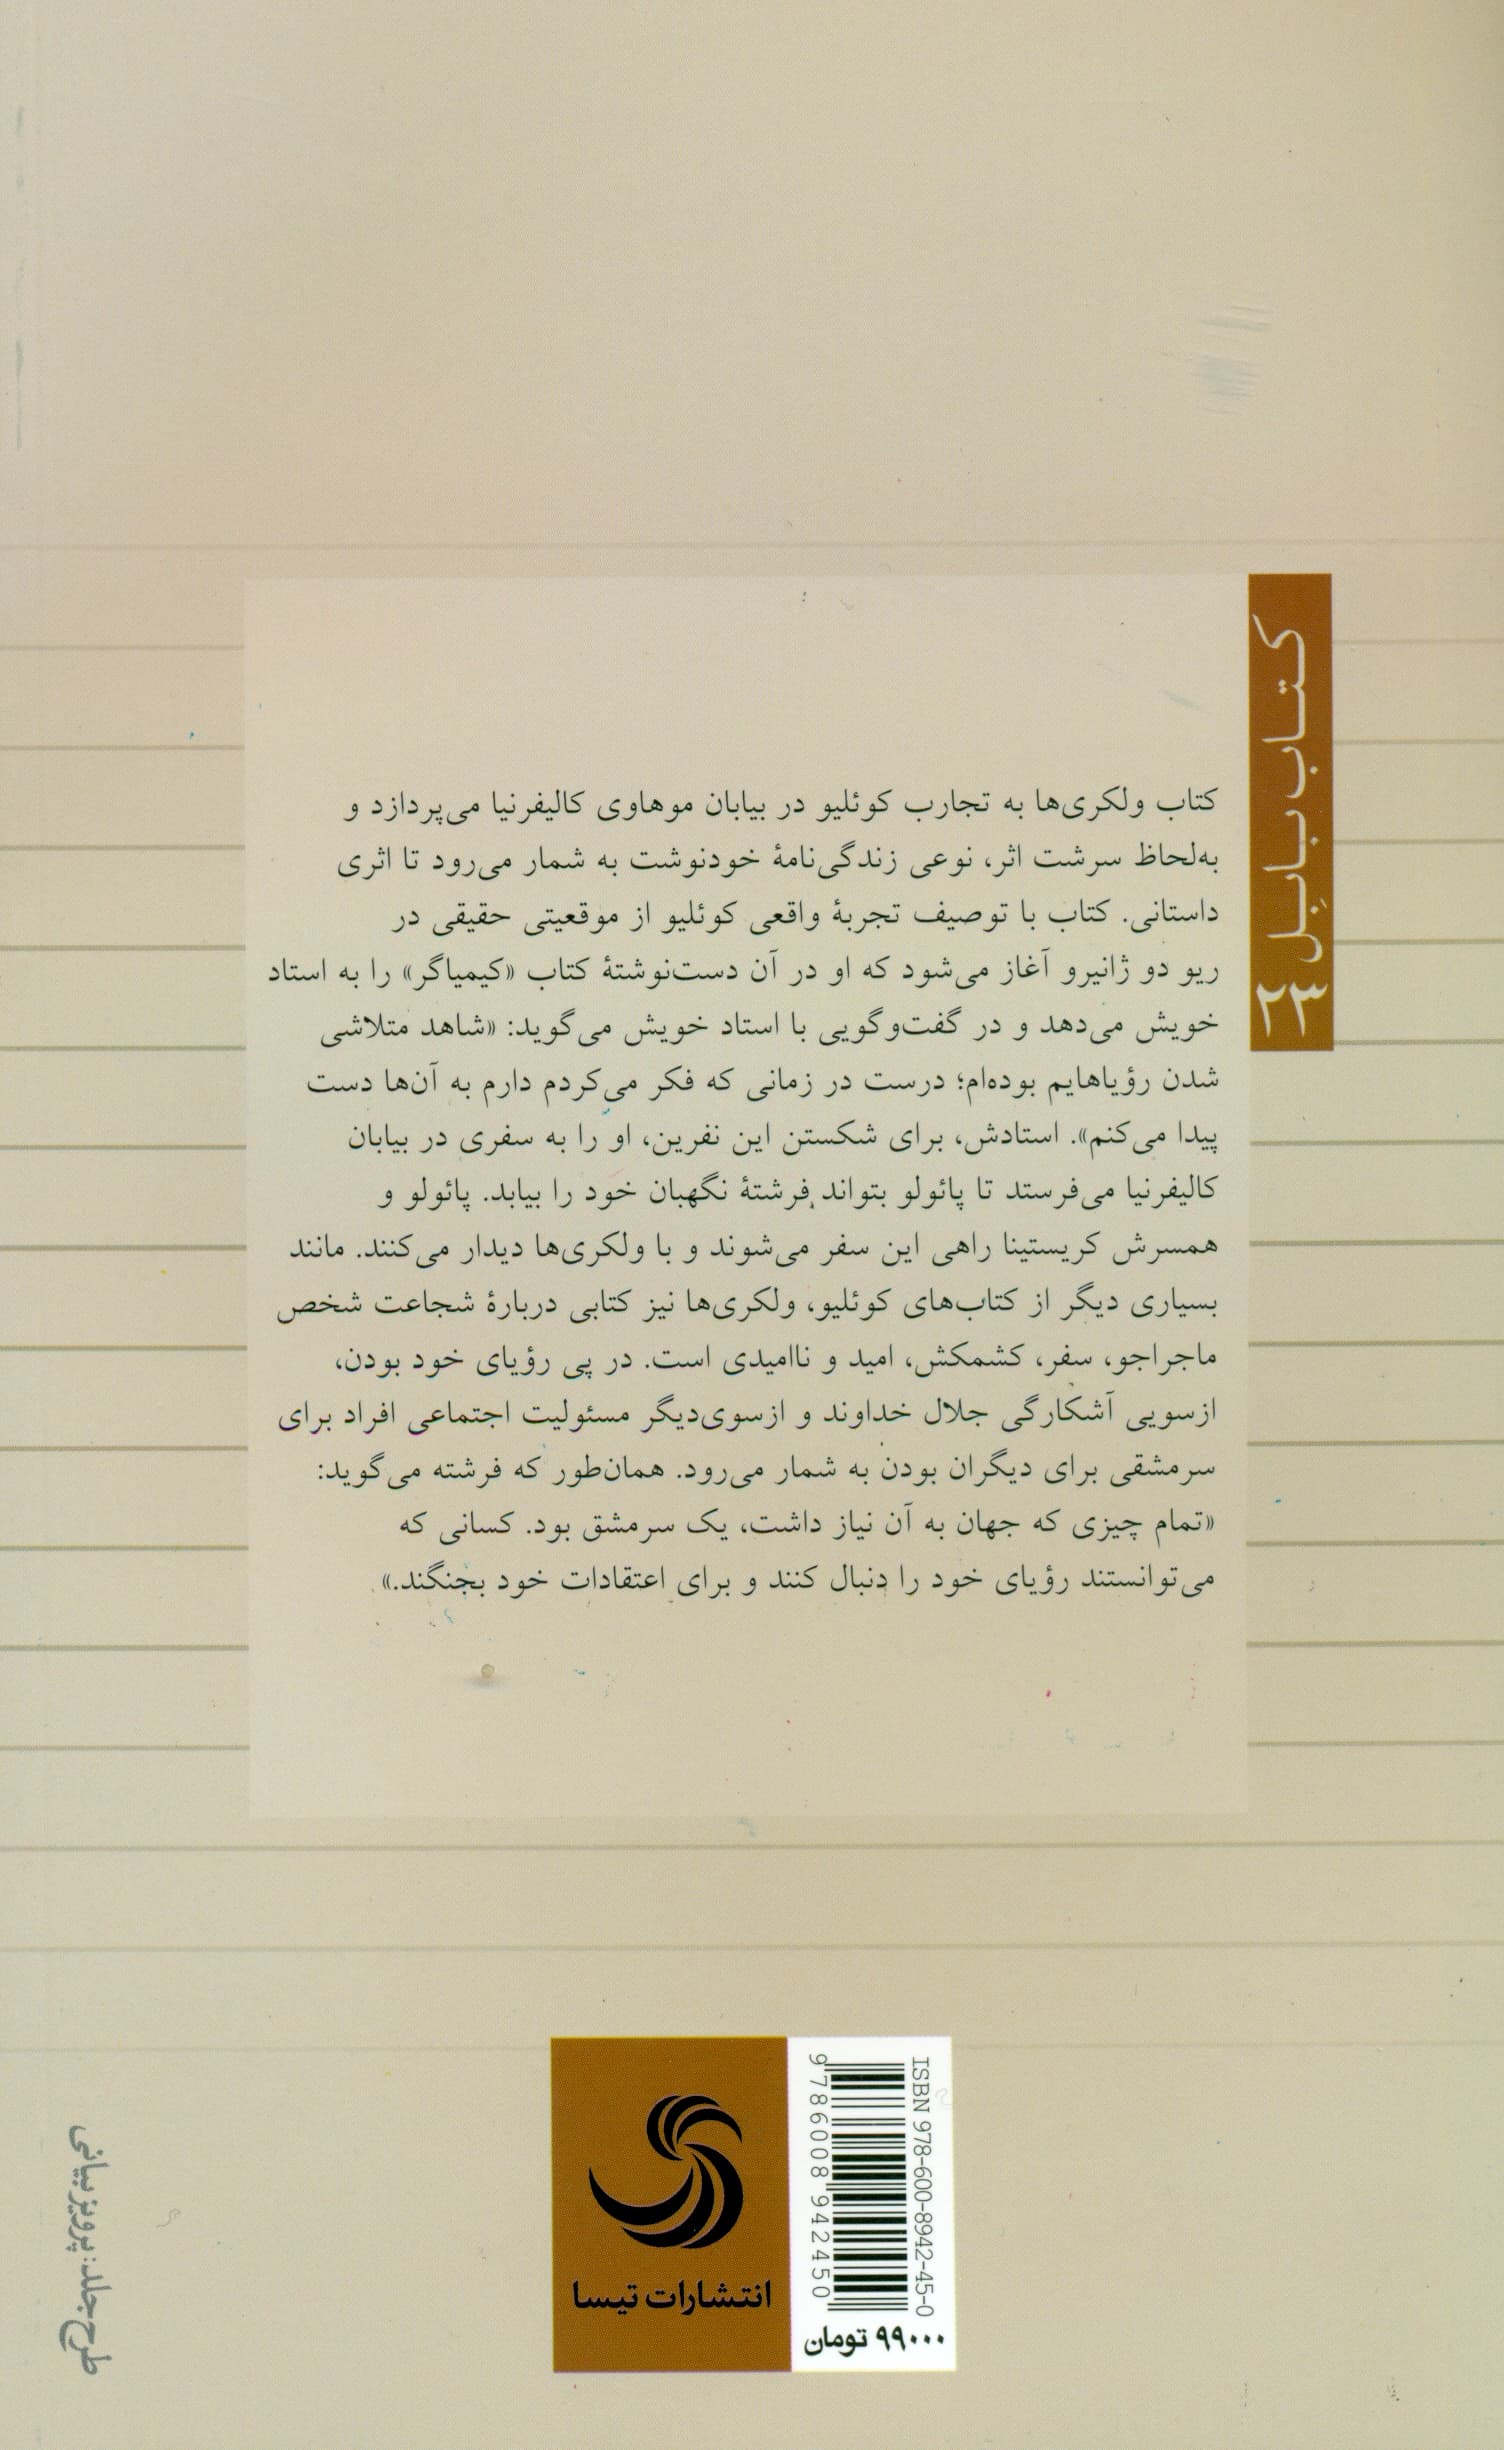 کتاب بابِل
۲۳
کتاب ولکری‌ها به تجارب کوئلیو در بیابان موهاوی کالیفرنیا می‌پردازد و
به‌لحاظ سرشت اثر، نوعی زندگی‌نامهٔ خودنوشت به شمار می‌رود تا اثری
داستانی. کتاب با توصیف تجربهٔ واقعی کوئلیو از موقعیتی حقیقی در
ریو دو ژانیرو آغاز می‌شود که او در آن دست‌نوشتهٔ کتاب «کیمیاگر» را به استاد
خویش می‌دهد و در گفت‌وگویی با استاد خویش می‌گوید: «شاهد متلاشی
شدن رؤیاهایم بوده‌ام؛ درست در زمانی که فکر می‌کردم دارم به آن‌ها دست
پیدا می‌کنم». استادش، برای شکستن این نفرین، او را به سفری در بیابان
کالیفرنیا می‌فرستد تا پائولو بتواند فرشتهٔ نگهبان خود را بیابد. پائولو و
همسرش کریستینا راهی این سفر می‌شوند و با ولکری‌ها دیدار می‌کنند. مانند
بسیاری دیگر از کتاب‌های کوئلیو، ولکری‌ها نیز کتابی دربارهٔ شجاعت شخص
ماجراجو، سفر، کشمکش، امید و ناامیدی است. در پی رؤیای خود بودن،
ازسویی آشکارگی جلال خداوند و ازسوی‌دیگر مسئولیت اجتماعی افراد برای
سرمشقی برای دیگران بودن به شمار می‌رود. همان‌طور که فرشته می‌گوید:
«تمام چیزی که جهان به آن نیاز داشت، یک سرمشق بود. کسانی که
می‌توانستند رؤیای خود را دنبال کنند و برای اعتقادات خود بجنگند.»
ISBN 978-600-8942-45-0
9 786008 942450
۹۹۰۰۰ تومان
انتشارات تیسا
طرح جلد: پرویز بیانی